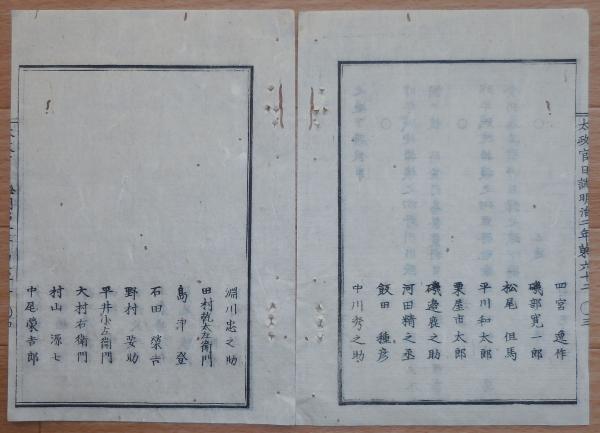 太政官日誌明治二年第六十二 〇三
四宮 逸作
磯部寛一郎
松尾 但馬
平川和太郎
粟屋市太郎
磯邉鹿之助
河田精之丞
飯田 種彦
中川秀之助
淵川忠之助
田村執太左衛門
島津 登
石田 榮吉
野村 安助
平井小左衛門
大村右衛門
村山 源七
中尾蘭吉郎